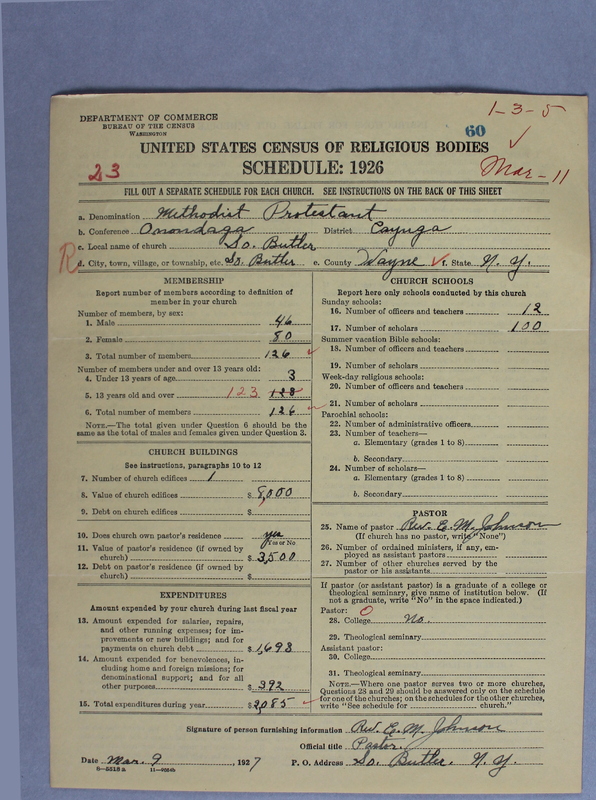 1-3-5
DEPARTMENT OF COMMERCE
BUREAU OF THE CENSUS
WASHINGTON
60
UNITED STATES CENSUS OF RELIGIOUS BODIES
23
SCHEDULE: 1926
Mar-11
FILL OUT A SEPARATE SCHEDULE FOR EACH CHURCH. SEE INSTRUCTIONS ON THE BACK OF THIS SHEET
a. Denomination Methodist Protestant
b. Conference Onondaga District Cayuga
c. Local name of church So. Butler
R
d. City, town, village, or township, etc. So. Butler e. County Wayne f. State N. Y.
MEMBERSHIP
Report number of members according to definition of
member in your church
Number of members, by sex:
1. Male 46
2. Female 80
3. Total number of members 126
Number of members under and over 13 years old:
4. Under 13 years of age 3
5. 13 years old and over 123 128
6. Total number of members 126
NOTE.—The total given under Question 6 should be the
same as the total of males and females given under Question 3.
CHURCH BUILDINGS
See instructions, paragraphs 10 to 12
7. Number of church edifices 1
8. Value of church edifices $ 8,000
9. Debt on church edifices $
10. Does church own pastor's residence yes
Yes or No
11. Value of pastor's residence (if owned by
church) $ 3,500
12. Debt on pastor's residence (if owned by
church) $
EXPENDITURES
Amount expended by your church during last fiscal year
13. Amount expended for salaries, repairs,
and other running expenses; for im-
provements or new buildings; and for
payments on church debt $ 1,698
14. Amount expended for benevolences, in-
cluding home and foreign missions; for
denominational support; and for all
other purposes $ 392
15. Total expenditures during year $ 2,085
CHURCH SCHOOLS
Report here only schools conducted by this church
Sunday schools:
16. Number of officers and teachers 12
17. Number of scholars 100
Summer vacation Bible schools:
18. Number of officers and teachers
19. Number of scholars
Week-day religious schools:
20. Number of officers and teachers
21. Number of scholars
Parochial schools:
22. Number of administrative officers
23. Number of teachers—
a. Elementary (grades 1 to 8)
b. Secondary
24. Number of scholars—
a. Elementary (grades 1 to 8)
b. Secondary
PASTOR
25. Name of pastor Rev. E. M. Johnson
(If church has no pastor, write "None")
26. Number of ordained ministers, if any, em-
ployed as assistant pastors
27. Number of other churches served by the
pastor or his assistants
If pastor (or assistant pastor) is a graduate of a college or
theological seminary, give name of institution below. (If
not a graduate, write "No" in the space indicated.)
Pastor: 0
28. College No.
29. Theological seminary
Assistant pastor:
30. College
31. Theological seminary
NOTE.—Where one pastor serves two or more churches,
Questions 28 and 29 should be answered only on the schedule
for one of the churches; on the schedules for the other churches,
write "See schedule for church."
Signature of person furnishing information Rev. E. M. Johnson
Official title Pastor.
Date Mar. 9, 1927 P. O. Address So. Butler. N. Y.